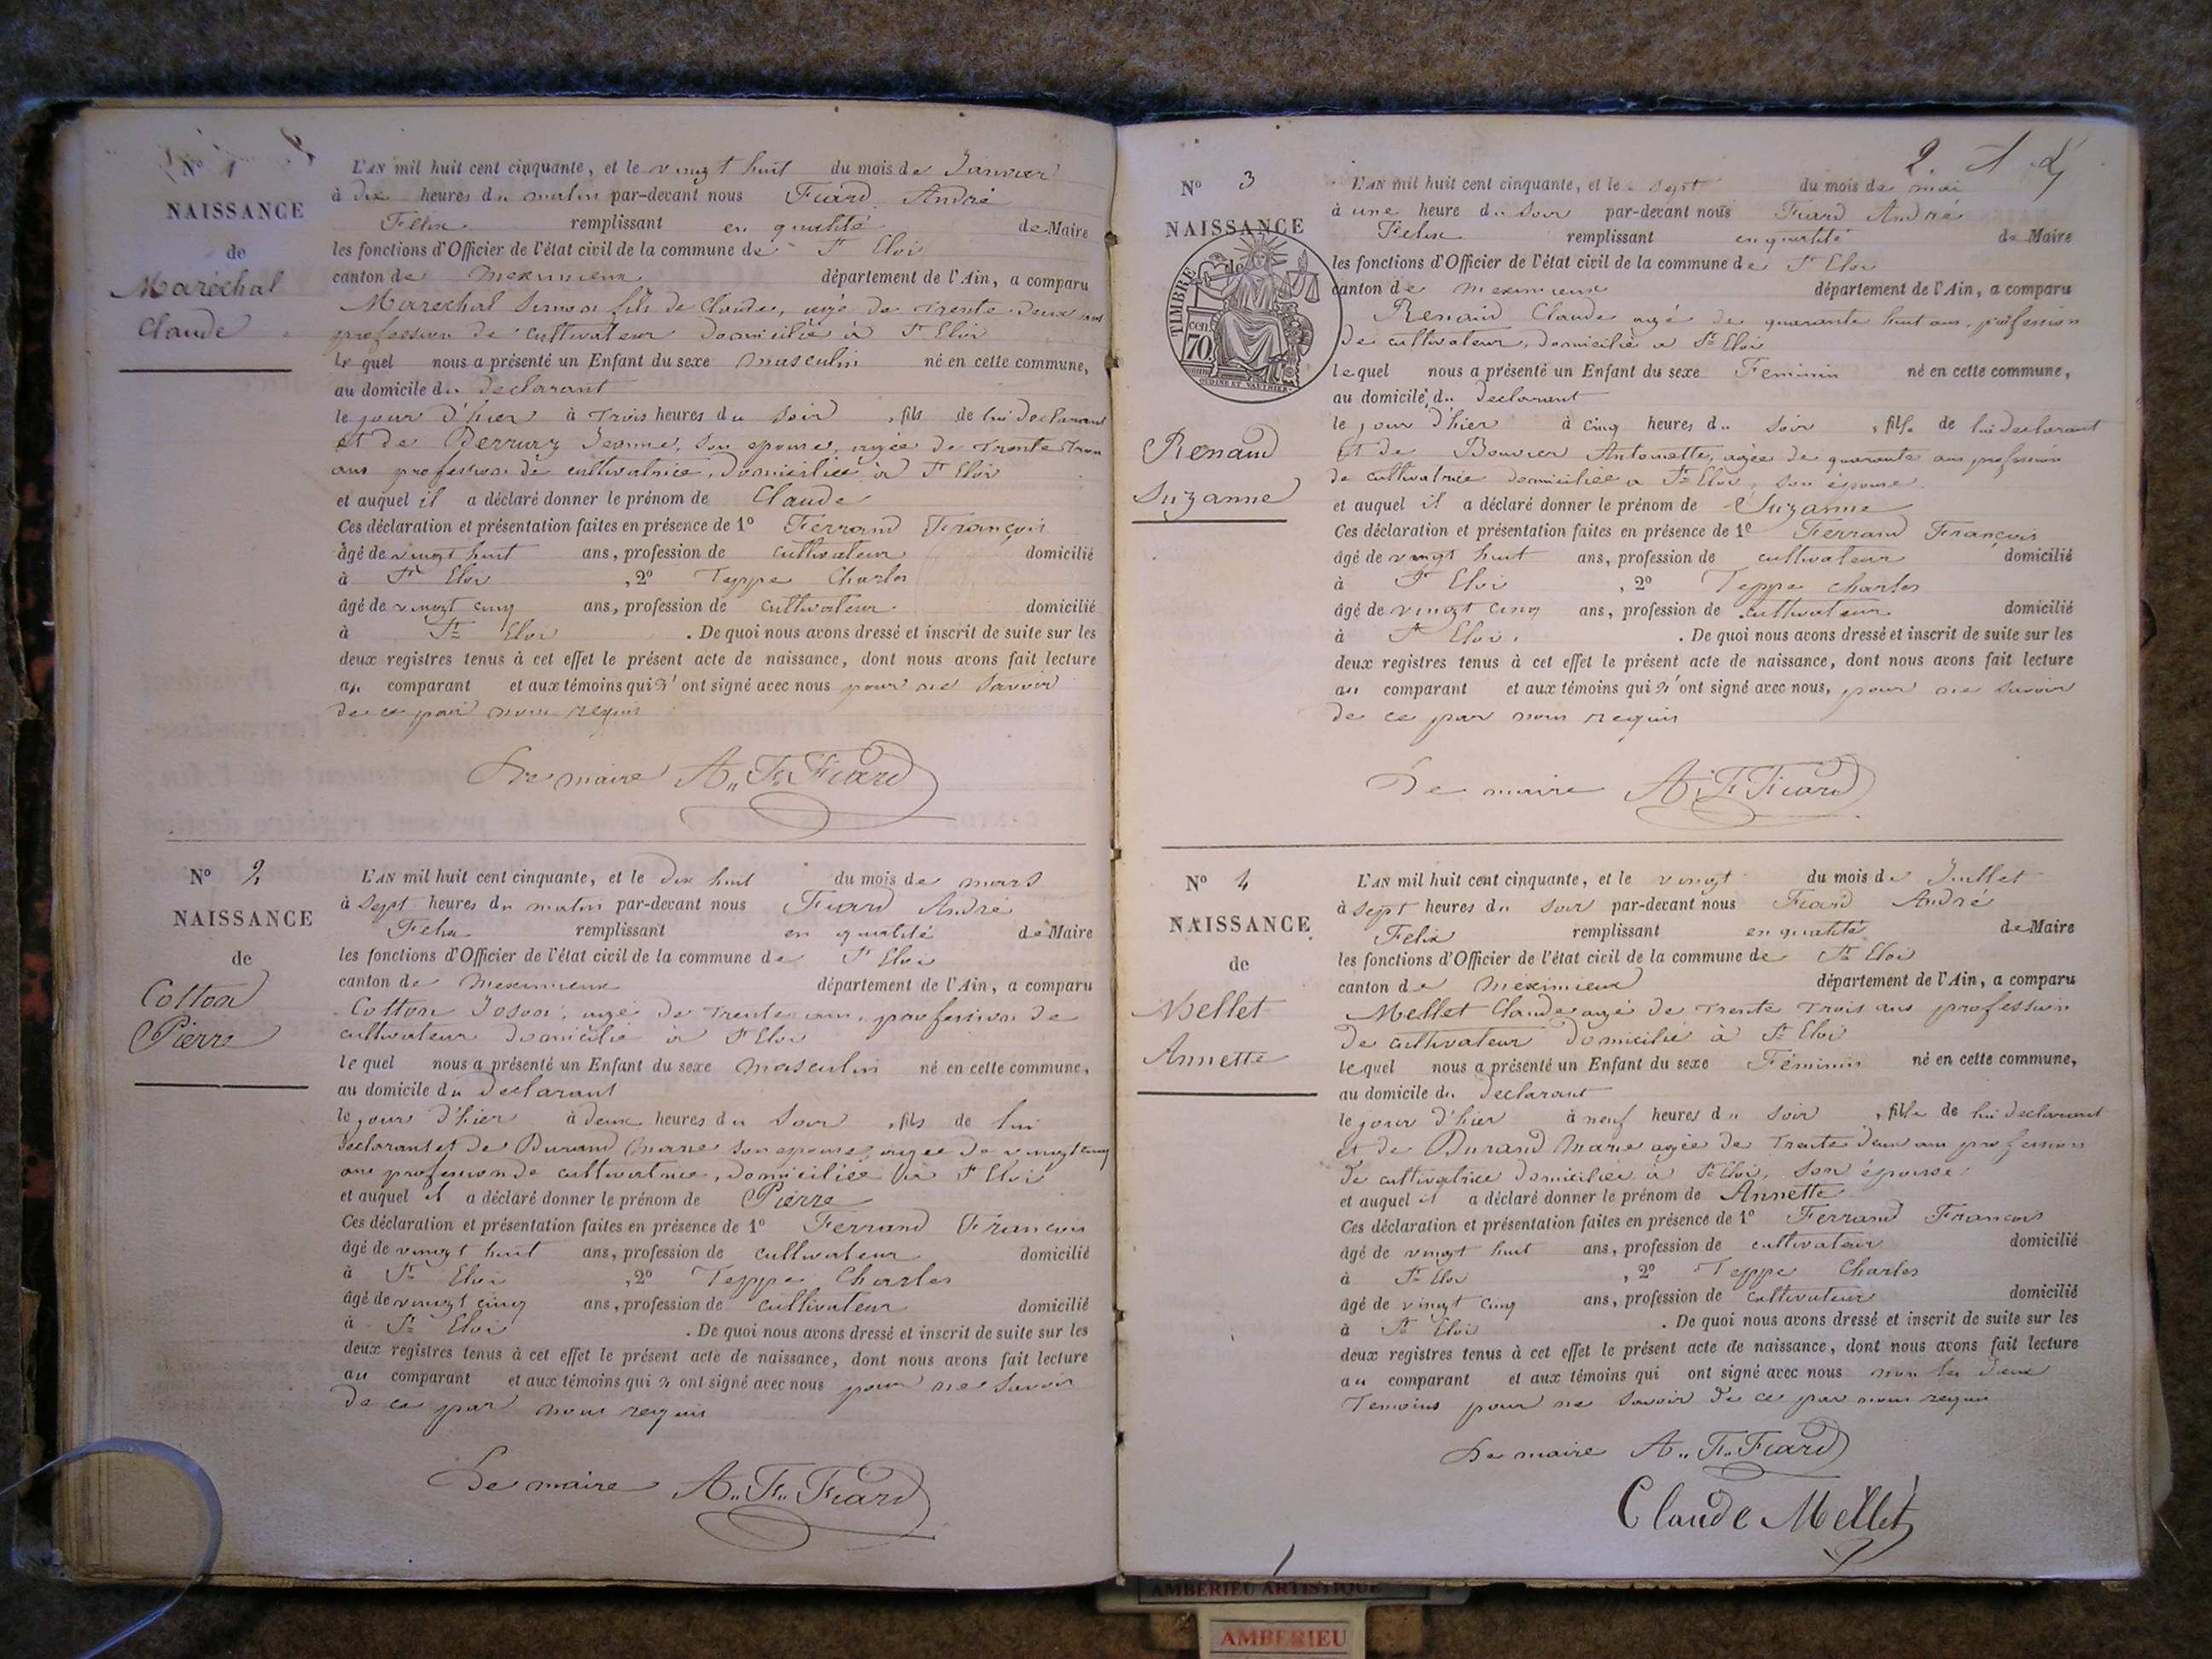 N° 1
NAISSANCE
de
Maréchal
Claude
L'AN mil huit cent cinquante, et le vingt huit du mois de Janvier
à dix heures du matin par-devant nous Fiard André
Félix remplissant en qualité de Maire
les fonctions d'Officier de l'état civil de la commune de St Eloi
canton de Meximieux département de l'Ain, a comparu
Marechal Simon fils de Claude, agé de trente deux ans
profession de cultivateur domicilié à St Eloi
lequel nous a présenté un Enfant du sexe masculin né en cette commune,
au domicile du declarant
le jour d'hier à trois heures du soir, fils de lui declarant
et de Jeanne, son epouse, agée de trente trois
ans profession de cultivatrice, domiciliée à St Eloi
et auquel il a déclaré donner le prénom de Claude
Ces déclaration et présentation faites en présence de 1° Ferrand François
âgé de vingt huit ans, profession de cultivateur domicilié
à St Eloi, 2° Teppe Charles
âgé de vingt cinq ans, profession de cultivateur domicilié
à St Eloi. De quoi nous avons dressé et inscrit de suite sur les
deux registres tenus à cet effet le présent acte de naissance, dont nous avons fait lecture
au comparant et aux témoins qui n'ont signé avec nous pour ne savoir
de ce par nous requis
Le maire A. F. Fiard
N° 2
NAISSANCE
de
Cotton
Pierre
L'AN mil huit cent cinquante, et le dix huit du mois de mars
à sept heures du matin par-devant nous Fiard André
Felix remplissant en qualité de Maire
les fonctions d'Officier de l'état civil de la commune de St Eloi
canton de Meximieux département de l'Ain, a comparu
Cotton agé de trente ans, profession de
cultivateur domicilié à St Eloi
lequel nous a présenté un Enfant du sexe masculin né en cette commune,
au domicile du declarant
le jour d'hier à deux heures du soir, fils de lui
declarant et de Durand Marie son epouse, agée de vingt cinq
ans profession de cultivatrice, domiciliée à St Eloi
et auquel il a déclaré donner le prénom de Pierre
Ces déclaration et présentation faites en présence de 1° Ferrand François
âgé de vingt huit ans, profession de cultivateur domicilié
à St Eloi, 2° Teppe Charles
âgé de vingt cinq ans, profession de cultivateur domicilié
à St Eloi. De quoi nous avons dressé et inscrit de suite sur les
deux registres tenus à cet effet le présent acte de naissance, dont nous avons fait lecture
au comparant et aux témoins qui n'ont signé avec nous pour ne savoir
de ce par nous requis
Le maire A. F. Fiard
2.
N° 3
NAISSANCE
de
TIMBRE
70 cen
OUDINE ET VAUTHIER
Renaud
Suzanne
L'AN mil huit cent cinquante, et le sept du mois de mai
à une heure du soir par-devant nous Fiard André
Felix remplissant en qualité de Maire
les fonctions d'Officier de l'état civil de la commune de St Eloi
canton de Meximieux département de l'Ain, a comparu
Renaud Claude agé de quarante huit ans, profession
de cultivateur, domicilié à St Eloi
lequel nous a présenté un Enfant du sexe Feminin né en cette commune,
au domicile du declarant
le jour d'hier à cinq heures du soir, fille de lui declarant
et de Bouvier Antoinette, agée de quarante ans profession
de cultivatrice domiciliée à St Eloi, son épouse
et auquel il a déclaré donner le prénom de Suzanne
Ces déclaration et présentation faites en présence de 1° Ferrand François
âgé de vingt huit ans, profession de cultivateur domicilié
à St Eloi, 2° Teppe Charles
âgé de vingt cinq ans, profession de cultivateur domicilié
à St Eloi. De quoi nous avons dressé et inscrit de suite sur les
deux registres tenus à cet effet le présent acte de naissance, dont nous avons fait lecture
au comparant et aux témoins qui n'ont signé avec nous, pour ne savoir
de ce par nous requis
Le maire A. F. Fiard
N° 4
NAISSANCE
de
Mellet
Annette
L'AN mil huit cent cinquante, et le vingt du mois de Juillet
à sept heures du soir par-devant nous Fiard André
Felix remplissant en qualité de Maire
les fonctions d'Officier de l'état civil de la commune de St Eloi
canton de Meximieux département de l'Ain, a comparu
Mellet Claude agé de trente trois ans profession
de cultivateur domicilié à St Eloi
lequel nous a présenté un Enfant du sexe Féminin né en cette commune,
au domicile du declarant
le jour d'hier à neuf heures du soir, fille de lui declarant
et de Durand Marie agée de trente deux ans profession
de cultivatrice domiciliée à St Eloi, son épouse
et auquel il a déclaré donner le prénom de Annette
Ces déclaration et présentation faites en présence de 1° Ferrand François
âgé de vingt huit ans, profession de cultivateur domicilié
à St Eloi, 2° Teppe Charles
âgé de vingt cinq ans, profession de cultivateur domicilié
à St Eloi. De quoi nous avons dressé et inscrit de suite sur les
deux registres tenus à cet effet le présent acte de naissance, dont nous avons fait lecture
au comparant et aux témoins qui ont signé avec nous non les deux
Temoins pour ne savoir de ce par nous requis
Le maire A. F. Fiard
Claude Mellet
AMBERIEU ARTISTIQUE
AMBERIEU